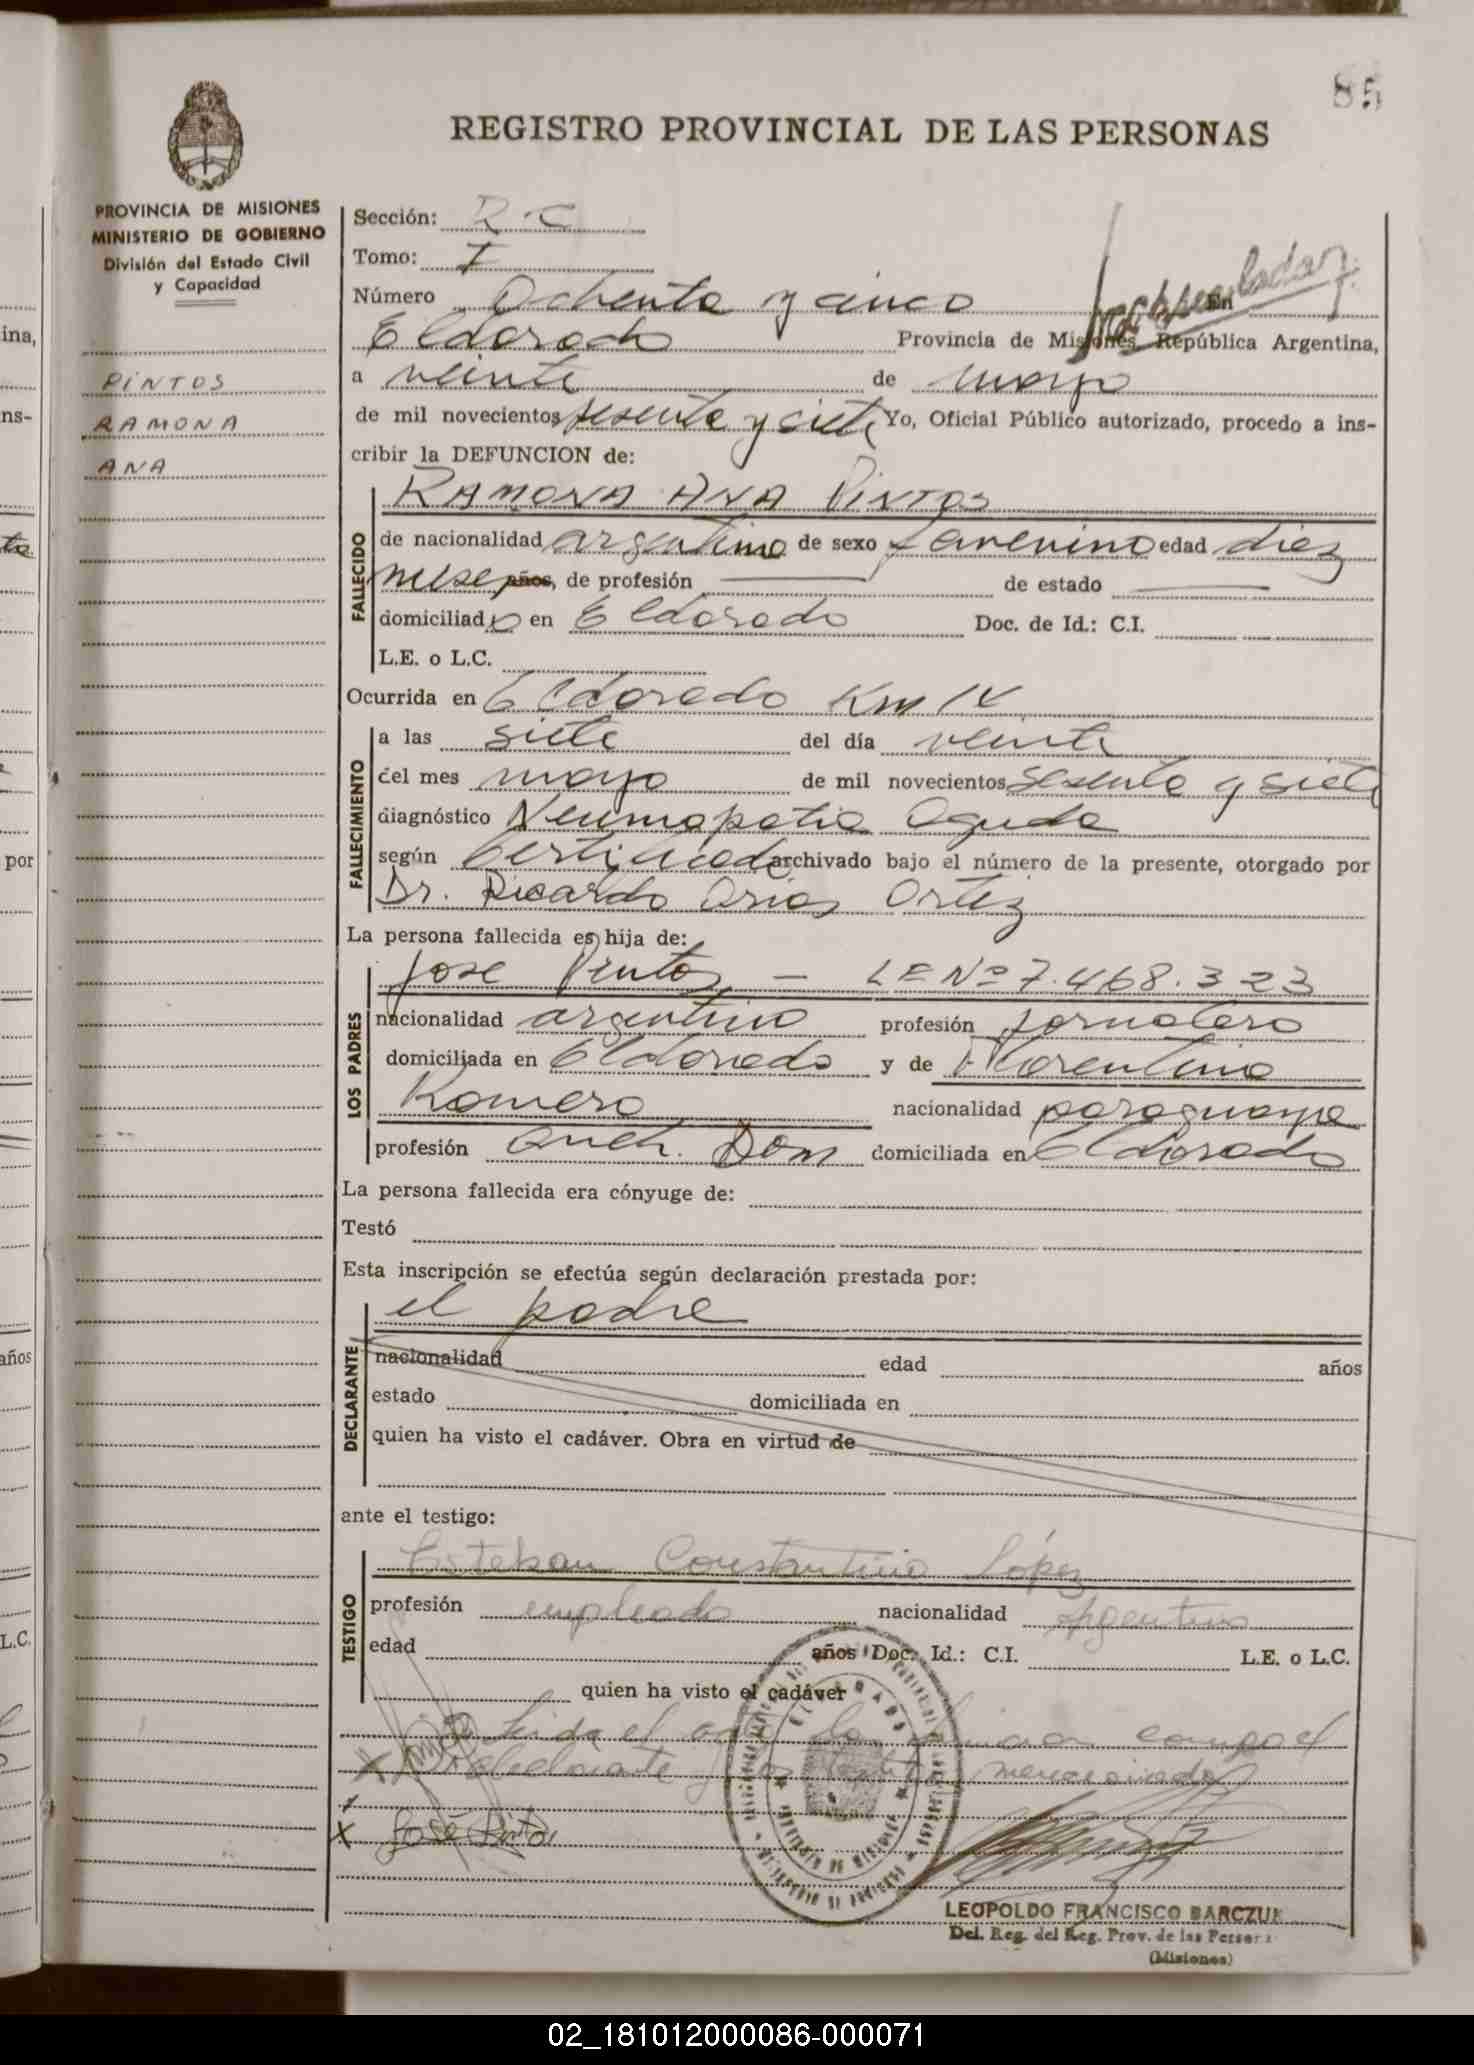 85
REGISTRO PROVINCIAL DE LAS PERSONAS
PROVINCIA DE MISIONES
MINISTERIO DE GOBIERNO
División del Estado Civil
y Capacidad
PINTOS
RAMONA
ANA
Sección: R.C
Tomo: I
Número Ochenta y cinco En
Eldorado Provincia de Misiones, República Argentina,
a veinte de mayo
de mil novecientos sesenta y siete Yo, Oficial Público autorizado, procedo a ins-
cribir la DEFUNCION de:
FALLECIDO
RAMONA ANA PINTOS
de nacionalidad argentina de sexo femenino edad diez
meses años, de profesión — de estado —
domiciliado en Eldorado Doc. de Id.: C.I.
L.E. o L.C.
Ocurrida en Eldorado Km IX
FALLECIMIENTO
a las siete del día veinte
del mes mayo de mil novecientos sesenta y siete
diagnóstico Neumopatia Aguda
según Certificado archivado bajo el número de la presente, otorgado por
Dr. Ricardo Arias Ortiz
La persona fallecida es hija de:
LOS PADRES
Jose Pintos — LE Nº 7.468.323
nacionalidad argentino profesión jornalero
domiciliada en Eldorado y de Florentina
Romero nacionalidad paraguaya
profesión Queh. Dom domiciliada en Eldorado
La persona fallecida era cónyuge de:
Testó
Esta inscripción se efectúa según declaración prestada por:
DECLARANTE
el padre
nacionalidad edad años
estado domiciliada en
quien ha visto el cadáver. Obra en virtud de
ante el testigo:
TESTIGO
Esteban Constantino López
profesión empleado nacionalidad Argentino
edad años Doc. Id.: C.I. L.E. o L.C.
quien ha visto el cadáver
Leida el acta la firman conmigo el
declarante y los testigos mencionados
X
X José Pintos
LEOPOLDO FRANCISCO BARCZUK
Del. Reg. del Reg. Prov. de las Persona
(Misiones)
ina,
ins-
por
años
L.C.
02_181012000086-000071